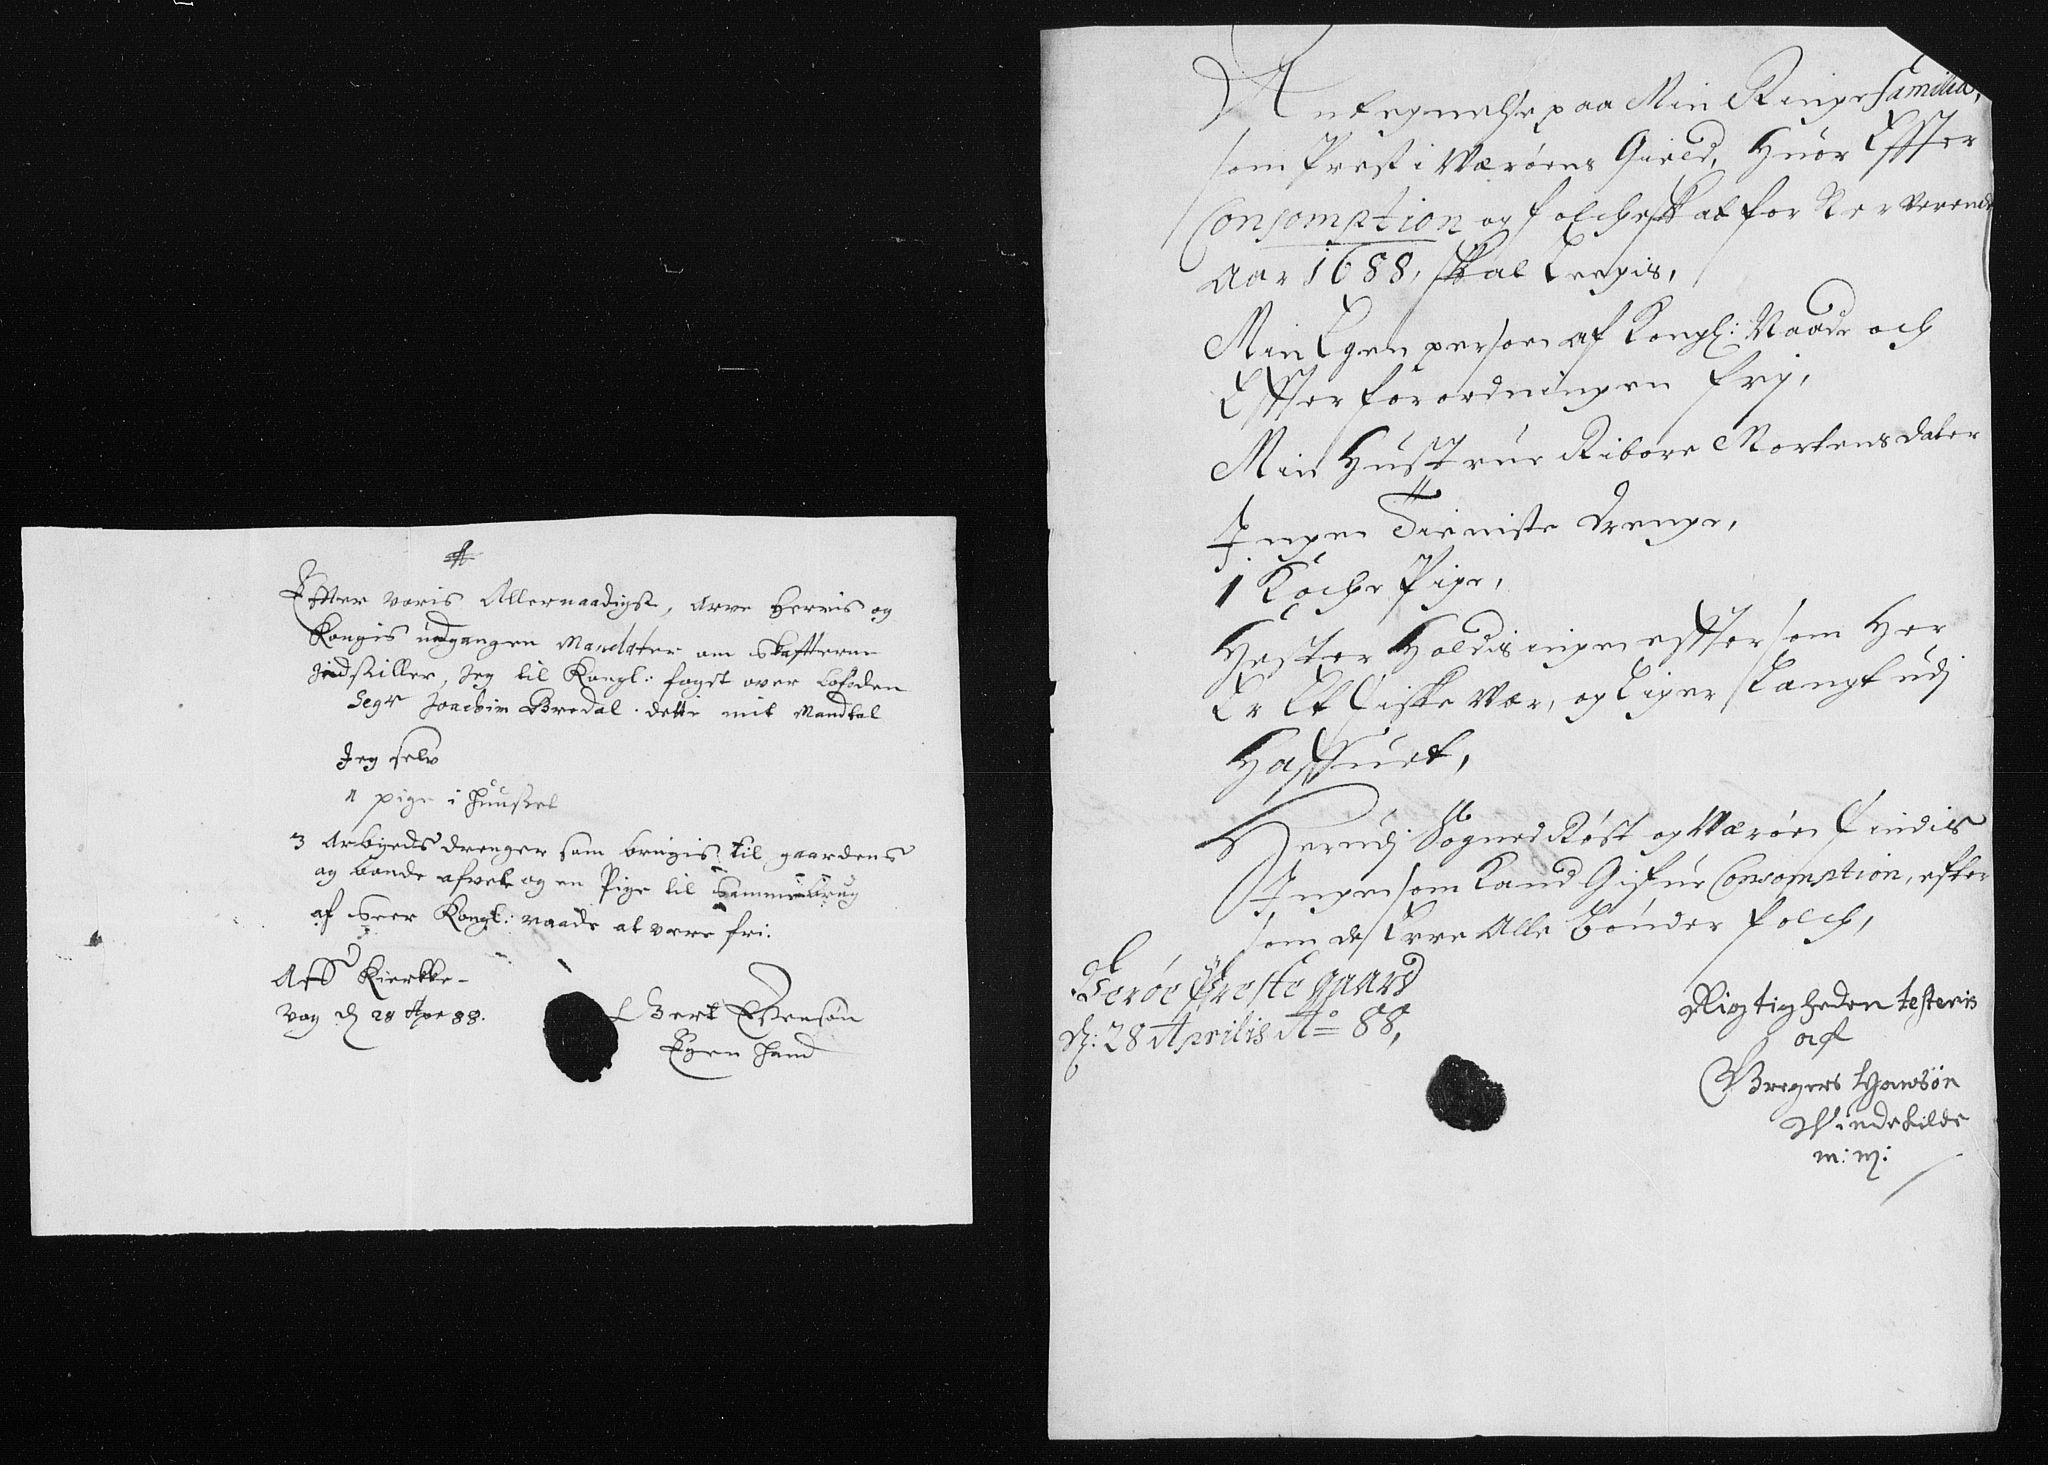 Efter voris Allernaadigste, Arve Herris og
Kongis udgangen Mandater om Skatterne
Jndstiller, Jeg til Kongl: fogst over Lofoden
Segr Joachim Bredal dette mit Mandtal
Jeg selv
1 pige i huuset
3 Arbyeds drenger som brugis til gaardens
og bonde afvel og en Pige til samme brug
af Kongl: naade at vere fri.
Aff Kierkke-
vog d 28 Apr 88.
Gert
Egen Hand
Antegnelse paa Min Ringe Familia,
som Prest i Værøens Gield, Huor Effter
Consomption og folcheskat for Nerverende
Aar 1688, skal Legis,
Min Egen person af Kongl: Naade och
Effter forordningen frj,
Min Hustrue Ribore Mortensdater
Ingen Tieniste drenge,
1 Koche Pige,
Hester Holdis ingen effter som Her
Er Et fiske Vær, og Liger Langt udj
Haffuet,
Herudj Sogned Røst og Værøen findis
Ingen som Kand Gifue Consomption, efter
som de Ere Alle bønder folch,
Verøe Preste gaard
d: 28 Aprilis Ao 88,
Rigtigheden testeris
af
Gregers Hansøn
Windekilde
m: m: